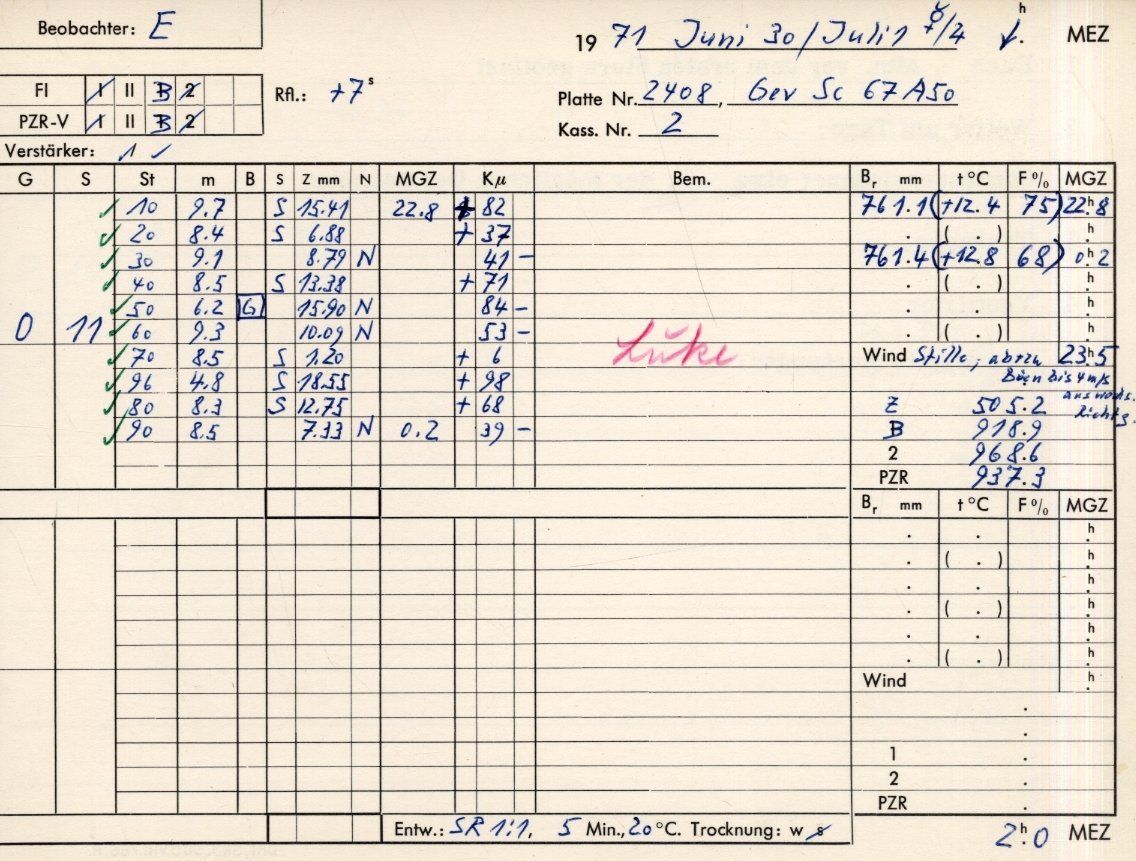 Beobachter: E
19 71 Juni 30/Juli 1 ☿/4 h MEZ
FI I II B 2
PZR-V I II B 2
Rfl.: +7 s
Platte Nr. 2408, Gev Sc 67 A50
Kass. Nr. 2
Verstärker: 1 ✓
G S St m B S Z mm N MGZ Kμ Bem. Br mm t °C F % MGZ
✓ 10 9.7 S 15.41 22.8 + 82 761.1 (+12.4 75) 22h.8
✓ 20 8.4 S 6.88 + 37 . ( . ) h
✓ 30 9.1 8.79 N 41 – 761.4 (+12.8 68) 0h.2
✓ 40 8.5 S 13.38 + 71 . ( . ) h
✓ 50 6.2 G 15.90 N 84 – . h
0 11 ✓ 60 9.3 10.09 N 53 – . ( . ) h
Lüke
✓ 70 8.5 S 1.20 + 6 Wind Stille, ab 23h.5
✓ 96 4.8 S 18.55 + 98 Böen bis 4 m/s
✓ 80 8.3 S 12.75 + 68 Z 505.2
✓ 90 8.5 7.33 N 0.2 39 – B 918.9
2 968.6
PZR 937.3
Br mm t °C F % MGZ
. h
. ( . ) h
. h
. ( . ) h
. h
. ( . ) h
Wind h
.
.
1 .
2 .
PZR .
Entw.: SR 1:1, 5 Min., 20 °C. Trocknung: w s
2h.0 MEZ